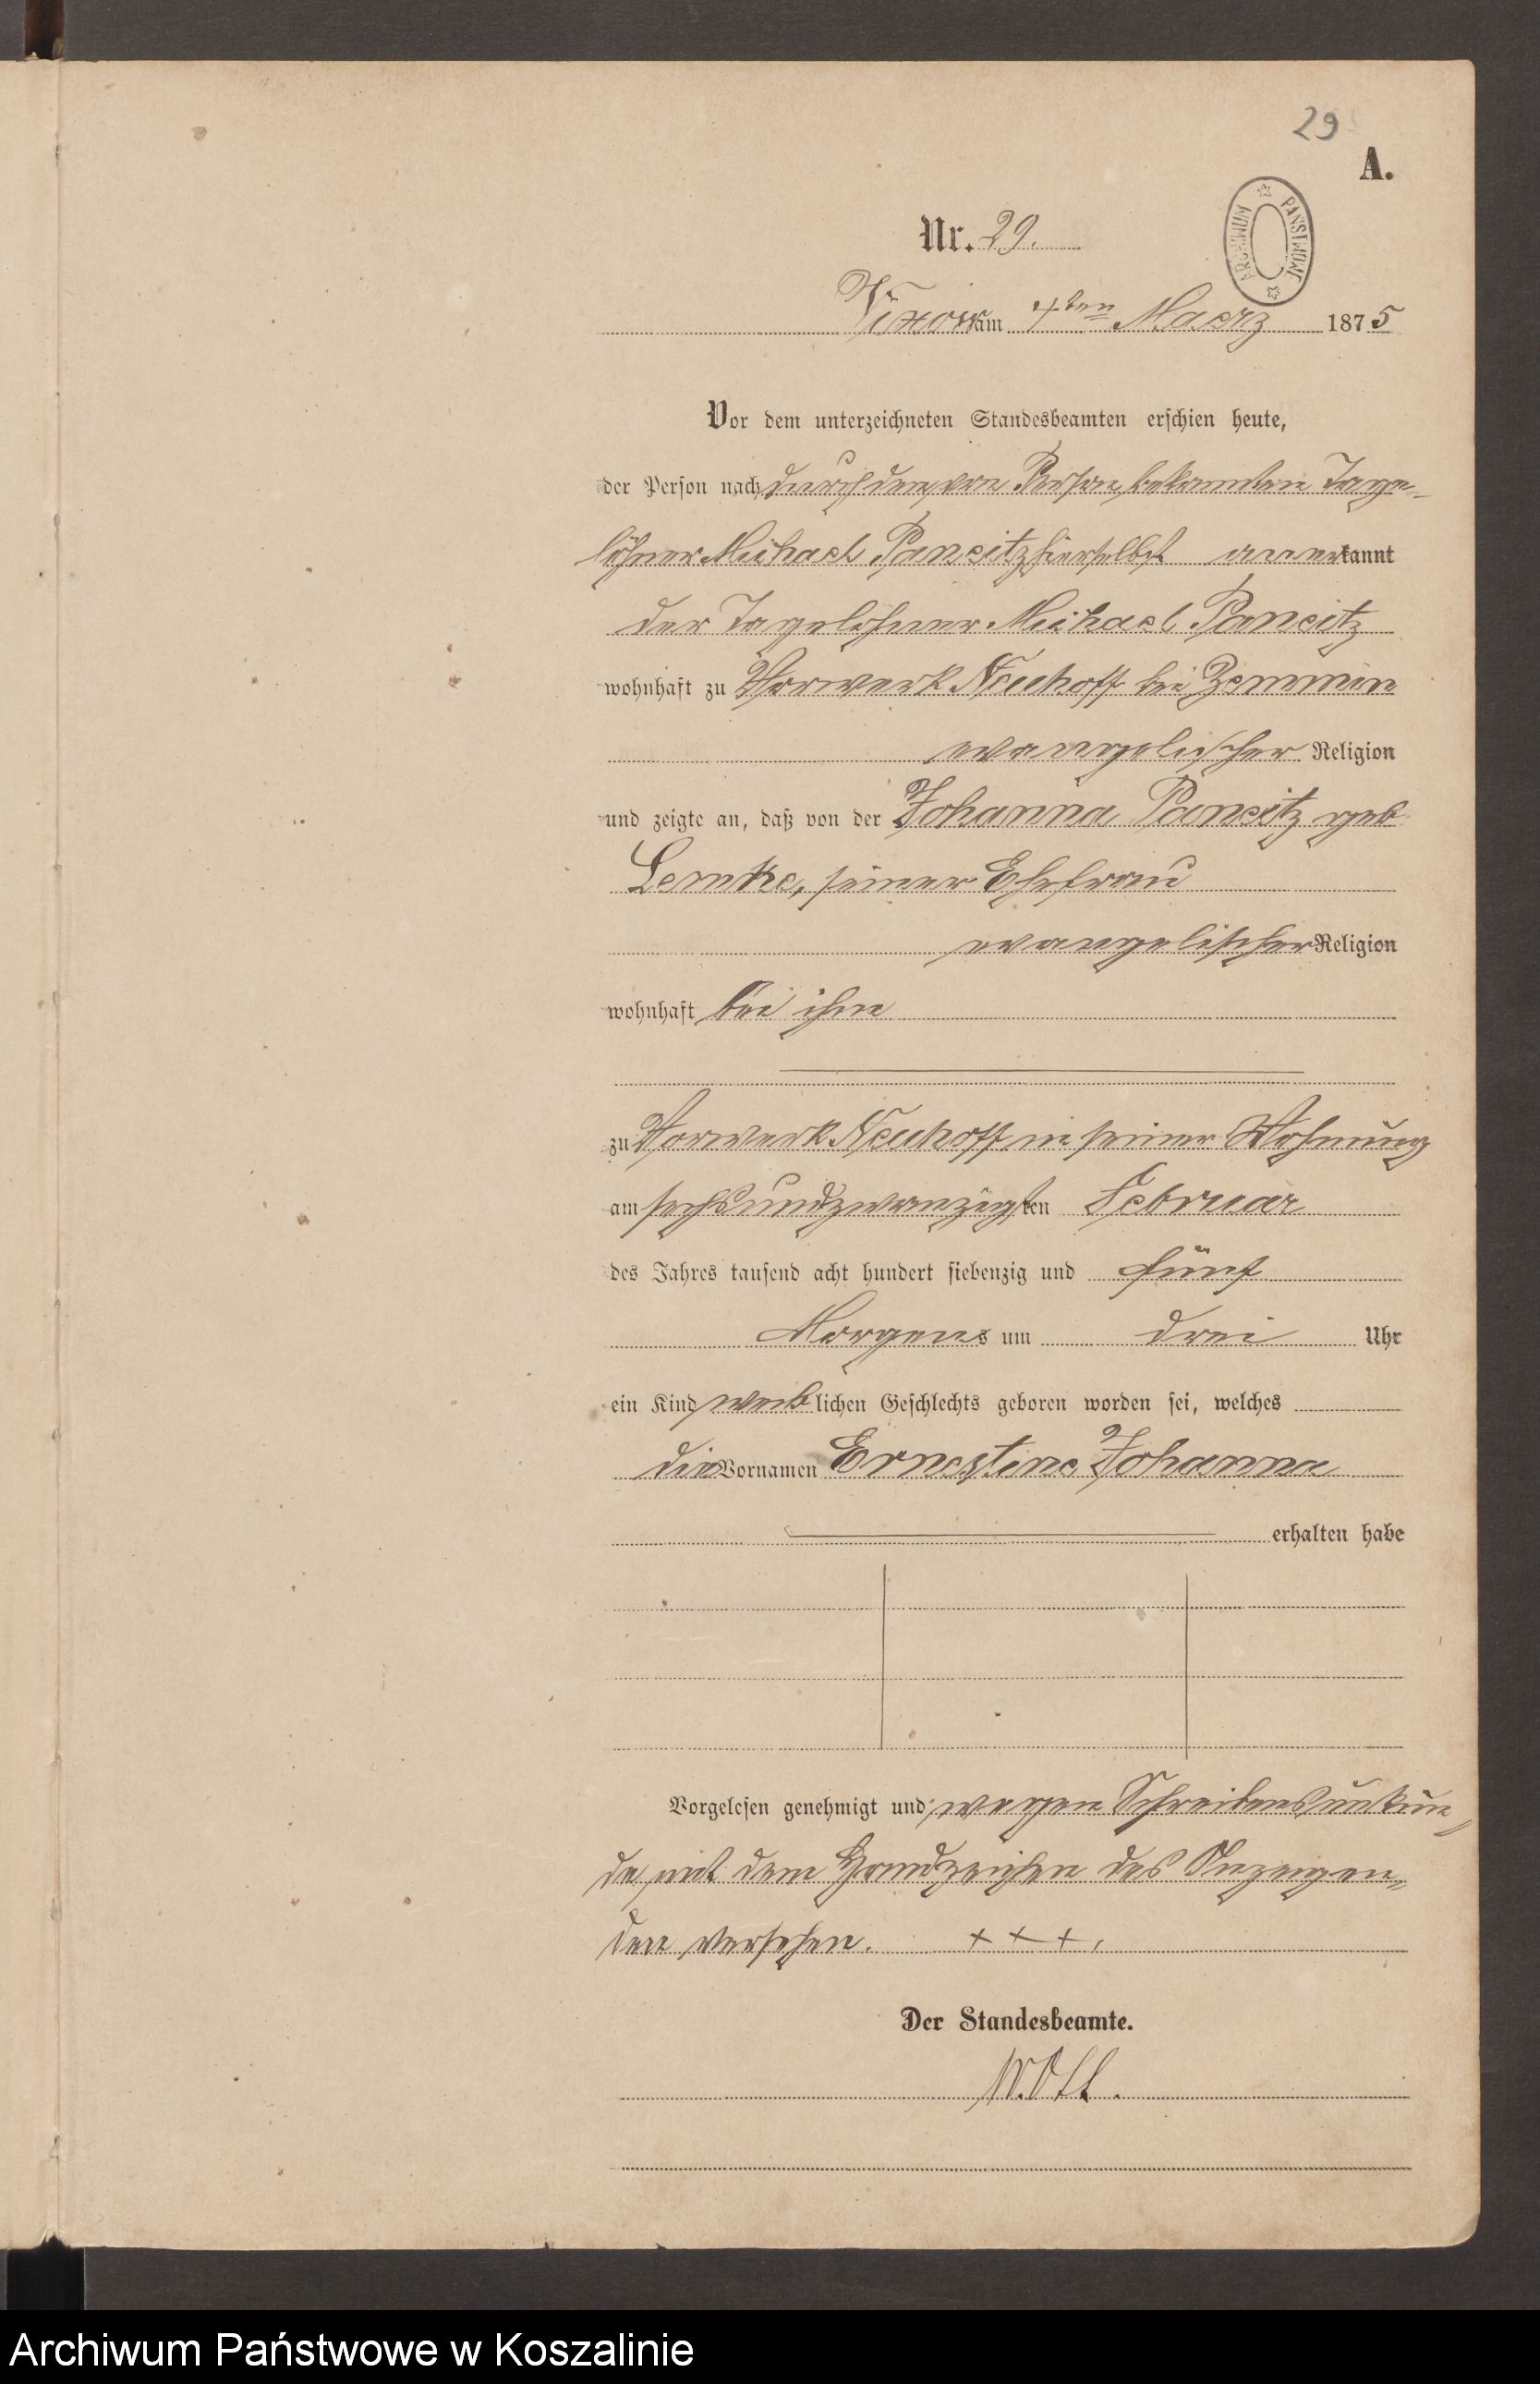 29
A.
ARCHIWUM PAŃSTWOWE
Nr. 29.
Vixow am 4ten Maerz 1875
Vor dem unterzeichneten Standesbeamten erschien heute,
der Person nach durch den von Person bekannten Tage-
löhner Michael Pansitz hierselbst anerkannt
der Tagelöhner Michael Pansitz
wohnhaft zu Vorwerk Neuhoff bei Zemmin
evangelischer Religion
und zeigte an, daß von der Johanna Pansitz geb
Lemke, seiner Ehefrau
evangelischer Religion
wohnhaft bei ihm
zu Vorwerk Neuhoff in seiner Wohnung
am sechsundzwanzigsten Februar
des Jahres tausend acht hundert siebenzig und fünf
Morgens um drei Uhr
ein Kind weiblichen Geschlechts geboren worden sei, welches
die Vornamen Ernestine Johanna
erhalten habe
Vorgelesen genehmigt und wegen Schreibensunkun-
de mit dem Handzeichen des Anzeigen-
den versehen. +++.
Der Standesbeamte.
Archiwum Państwowe w Koszalinie